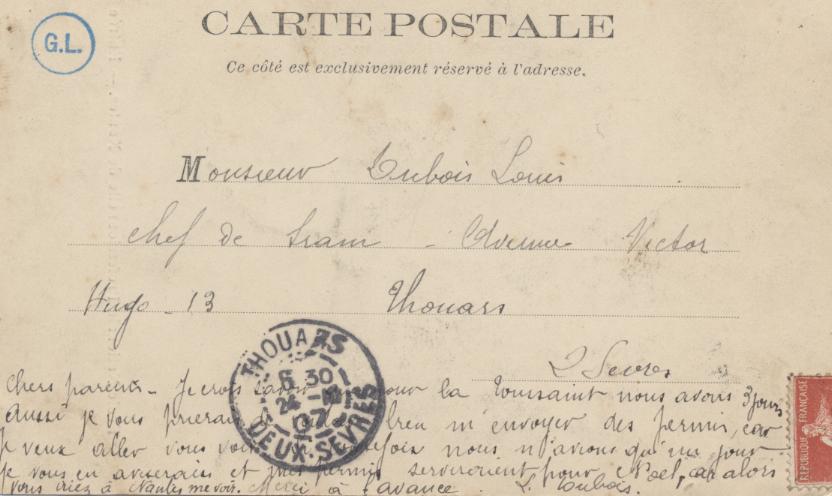 G.L.
CARTE POSTALE
Ce côté est exclusivement réservé à l'adresse.
Monsieur Dubois Louis
Chef de train - Avenue Victor
Hugo - 13 Thouars
2 Sevres
THOUARS
6 30
24
07
DEUX-SEVRES
REPUBLIQUE FRANÇAISE
Chers parents - Je crois savoir pour la Toussaint nous avons 3 jours
aussi je vous prierais de bien m'envoyer des permis, car
je veux aller vous voir nous n'avions qu'un jour
je vous en aviserais et mes permis serviraient pour Noel, car alors
vous iriez à Nantes me voir. Merci à l'avance L. Dubois.